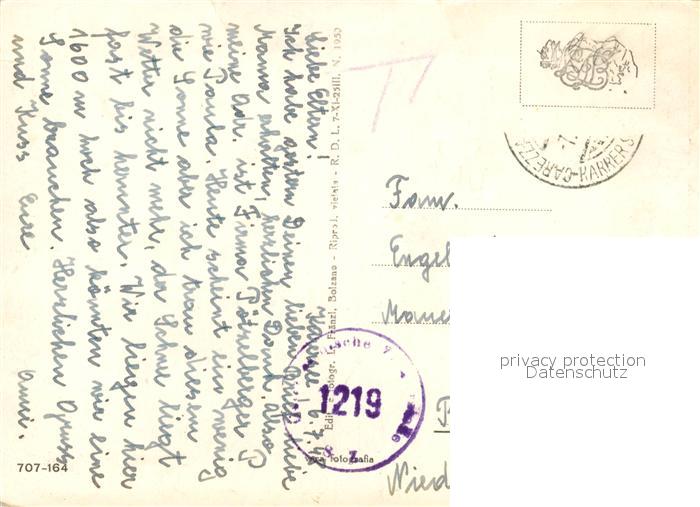 Karersee, 6.7.48
Liebe Eltern!
Ich habe gestern Deinen lieben Brief, liebe
Mama erhalten, herzlichen Dank. Also
meine Adr. ist Firma P
wie Paula. Heute scheint ein wenig
die Sonne aber ich trau diesem
Wetter nicht mehr, der Schnee liegt
fast bis herunter. Wir liegen hier
1600 m hoch also könnten wir eine
Sonne brauchen. Herzlichen Gruss
und Kuss Eure Anni.
707-164
Ediz. Fotogr. L. Fränzl, Bolzano - Riprod. vietata - R. D. L. 7-XI-25III. N. 1950
Vera fotografia
1219
CAREZZA-KARRERS
Fam.
Engel
P
Nied
privacy protection
Datenschutz